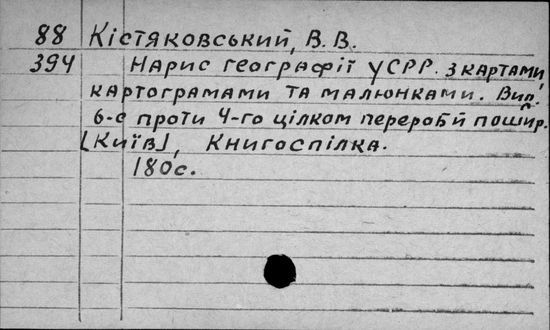 88 Кістяковський, В. В.
394 Нарис географії УСРР. З картами,
картограмами та малюнками. Вип.
6-е проти 4-го цілком перероб й пошир.
[Київ], Книгоспілка.
180с.